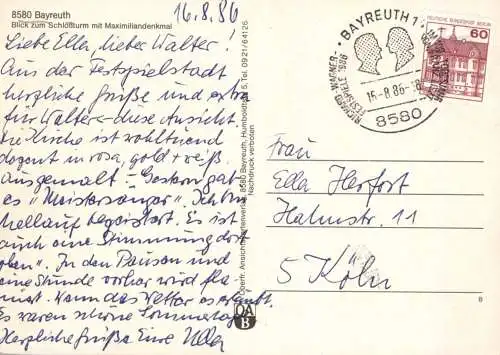 8580 Bayreuth
Blick zum Schloßturm mit Maximiliandenkmal
16.8.86
Liebe Ella, lieber Walter!
Aus der Festspielstadt
herzliche Grüße und extra
für Walter diese Ansicht.
Die Kirche ist wohltuend
dezent in rosa, gold + weiß
ausgemalt – Gestern gab
es "Meistersinger". Ich bin
hellauf begeistert. Es ist
auch eine Stimmung dort
oben". In den Pausen und
eine Stunde vorher wird fla-
niert. Wenn das Wetter es erlaubt.
Es waren schöne Sommertage
Herzliche Grüße Eure
Oberfr. Ansichtskartenverlag, 8580 Bayreuth, 5, Tel. 0921/64126
Nachdruck verboten
OA
B
BAYREUTH 1
RICHARD-WAGNER-
FESTSPIELE 1986
8580
DEUTSCHE BUNDESPOST BERLIN
60
Frau
Ella Herfort
Halmstr. 11
5 Köln
8